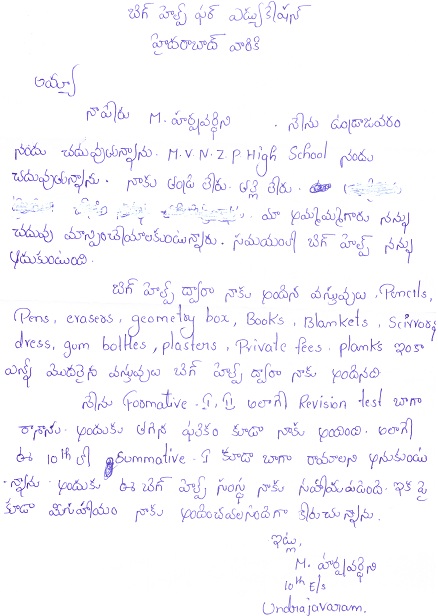 బిగ్ హెల్ప్ ఫర్ ఎడ్యుకేషన్
హైదరాబాద్ వారికి
అయ్యా
నాపేరు M. హర్షవర్ధిని . నేను ఉండ్రాజవరం
నందు చదువుతున్నాను. M.V.N.Z.P High School నందు
చదువుతున్నాను. నాకు తండ్రి లేరు. తల్లి లేరు.
మా అమ్మమ్మగారు నన్ను
చదువు మాన్పించేయాలకుంటున్నారు. సమయంలో బిగ్ హెల్ప్ నన్ను
ఆదుకుంటుంది.
బిగ్ హెల్ప్ ద్వారా నాకు అందిన వస్తువులు, Pencils,
Pens, erasers, geometry box, Books, Blankets, Scissors,
dress, gum bottles, plasters, Private fees. planks ఇంకా
ఎన్నో మొదలైన వస్తువులు బిగ్ హెల్ప్ ద్వారా నాకు అందినది
నేను Formative. I, II అలాగే Revision test బాగా
రాసాను. అందుకు తగిన ఫలితం కూడా నాకు అయింది. అలాగే
ఈ 10th లో Summative. I కూడా బాగా రాయాలని అనుకుంటు
న్నాను. అందుకు ఈ బిగ్ హెల్ప్ సంస్థ నాకు సహాయపడింది. ఇక పై
కూడా మీసహాయం నాకు అందించవలసిందిగా కోరుచున్నాను.
ఇట్లు,
M. హర్షవర్ధిని
10th E/s
Undrajavaram.